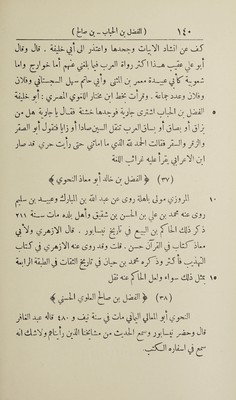 ١٤٠ ( الفضل بن الحباب - بن صالح )
كف عن انشاد الابيات وجحدها واعتذر الى أبي خليفة . قال وقال
أبو علي عقيب هذا اكثر رواة العرب فيما بلغني عنهم أما خوارج واما
شعوبية كأبي عبيدة معمر بن المثنى وأبي حاتم سهل السجستاني وفلان
وفلان وعدد جماعة . وقرأت بخط ابن مختار اللغوي المصري : أبو خليفة
الفضل بن الحباب اشترى جارية فوجدها خشنة فقال يا جارية هل من
بزاق أو بصاق أو بساق العرب تنقل السين صادا أو زايا فتقول أبو الصقر
والزقر والسقر فقالت الحمد لله الذي ما اماتني حتى رأيت حري قد صار
ابن الاعرابي يقرأ عليه غرائب اللغة
(٣٧) ﴿ الفضل بن خالد أبو معاذ النحوي ﴾
١٠ المروزي مولى باهلة روى عن عبد الله بن المبارك وعبيد بن سليم
روى عنه محمد بن علي بن الحسن بن شقيق وأهل بلده مات سنة ٢١١
ذكر ذلك الحاكم بن البيع في تاريخ نيسابور . قال الازهري ولأبي
معاذ كتاب في القرآن حسن . قلت وقد روى عنه الازهري في كتاب
التهذيب فأكثر وذكره محمد بن حبان في تاريخ الثقات في الطبقة الرابعة
١٥ بمثل ذلك سواء ولعل الحاكم عنه نقل
(٣٨) ﴿ الفضل بن صالح العلوي الحسني ﴾
النحوي أبو المعالي اليماني مات في سنة نيف و ٤٨٠ قاله عبد الغافر
قال وحضر نيسابور وسمع الحديث من مشايخنا الذين رأيناهم ولاشك انه
سمع في اسفاره الكتب